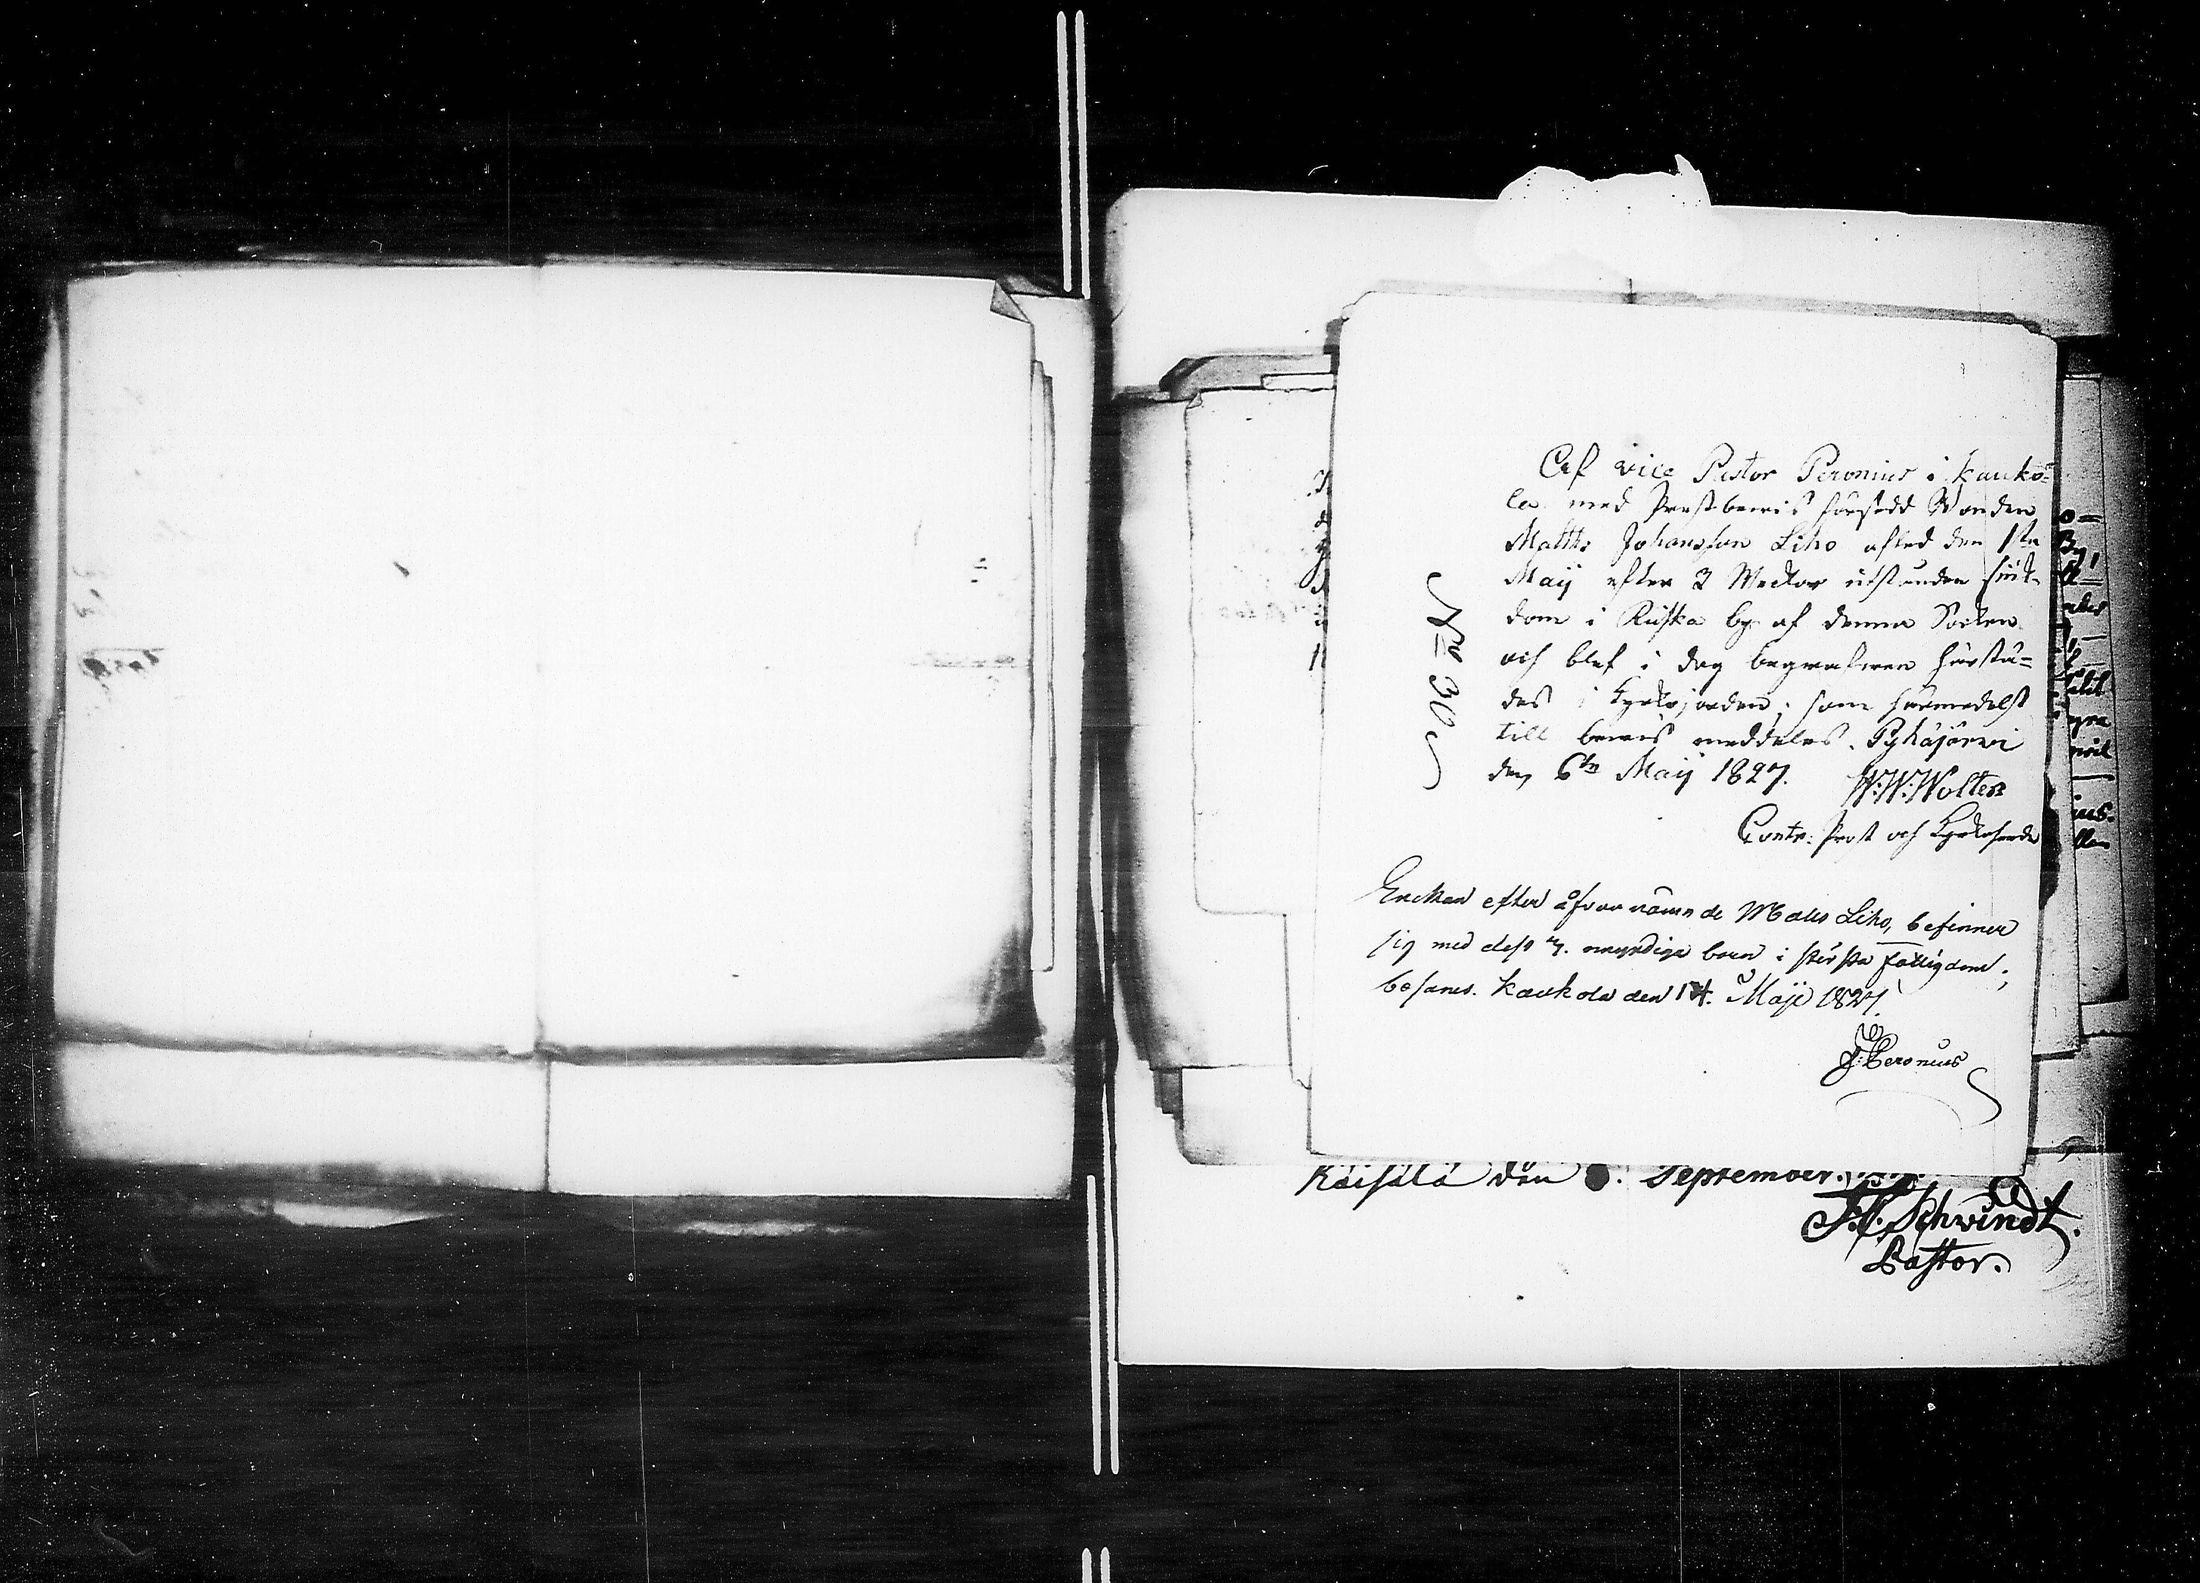 Af vice Pastor Peronius i Kauko=
la med Prestbewis försedd Bonden
Matths Johansson Liho afled den 1sta
Maij efter 2 Weckor utstånden siuk-
dom i Riiska by af denna Socken
och blef i dag begrafwen härstä=
des i Kyrkojorden; som härmedelst
till bewis meddelas. Pyhäjärwi
den 6te Maij 1827. W:W:Wolter
Contr: Prost och Kyrkoherde
Nro 30
Enckan efter åfvannämnde Matts Liho, befinner
sig med dess 7. omyndiga barn i största fattigdom;
besannas. Kaukola den 14. Maji 1827.
J: Peronius
Käisälä den . September.
Schvindt.
Pastor.